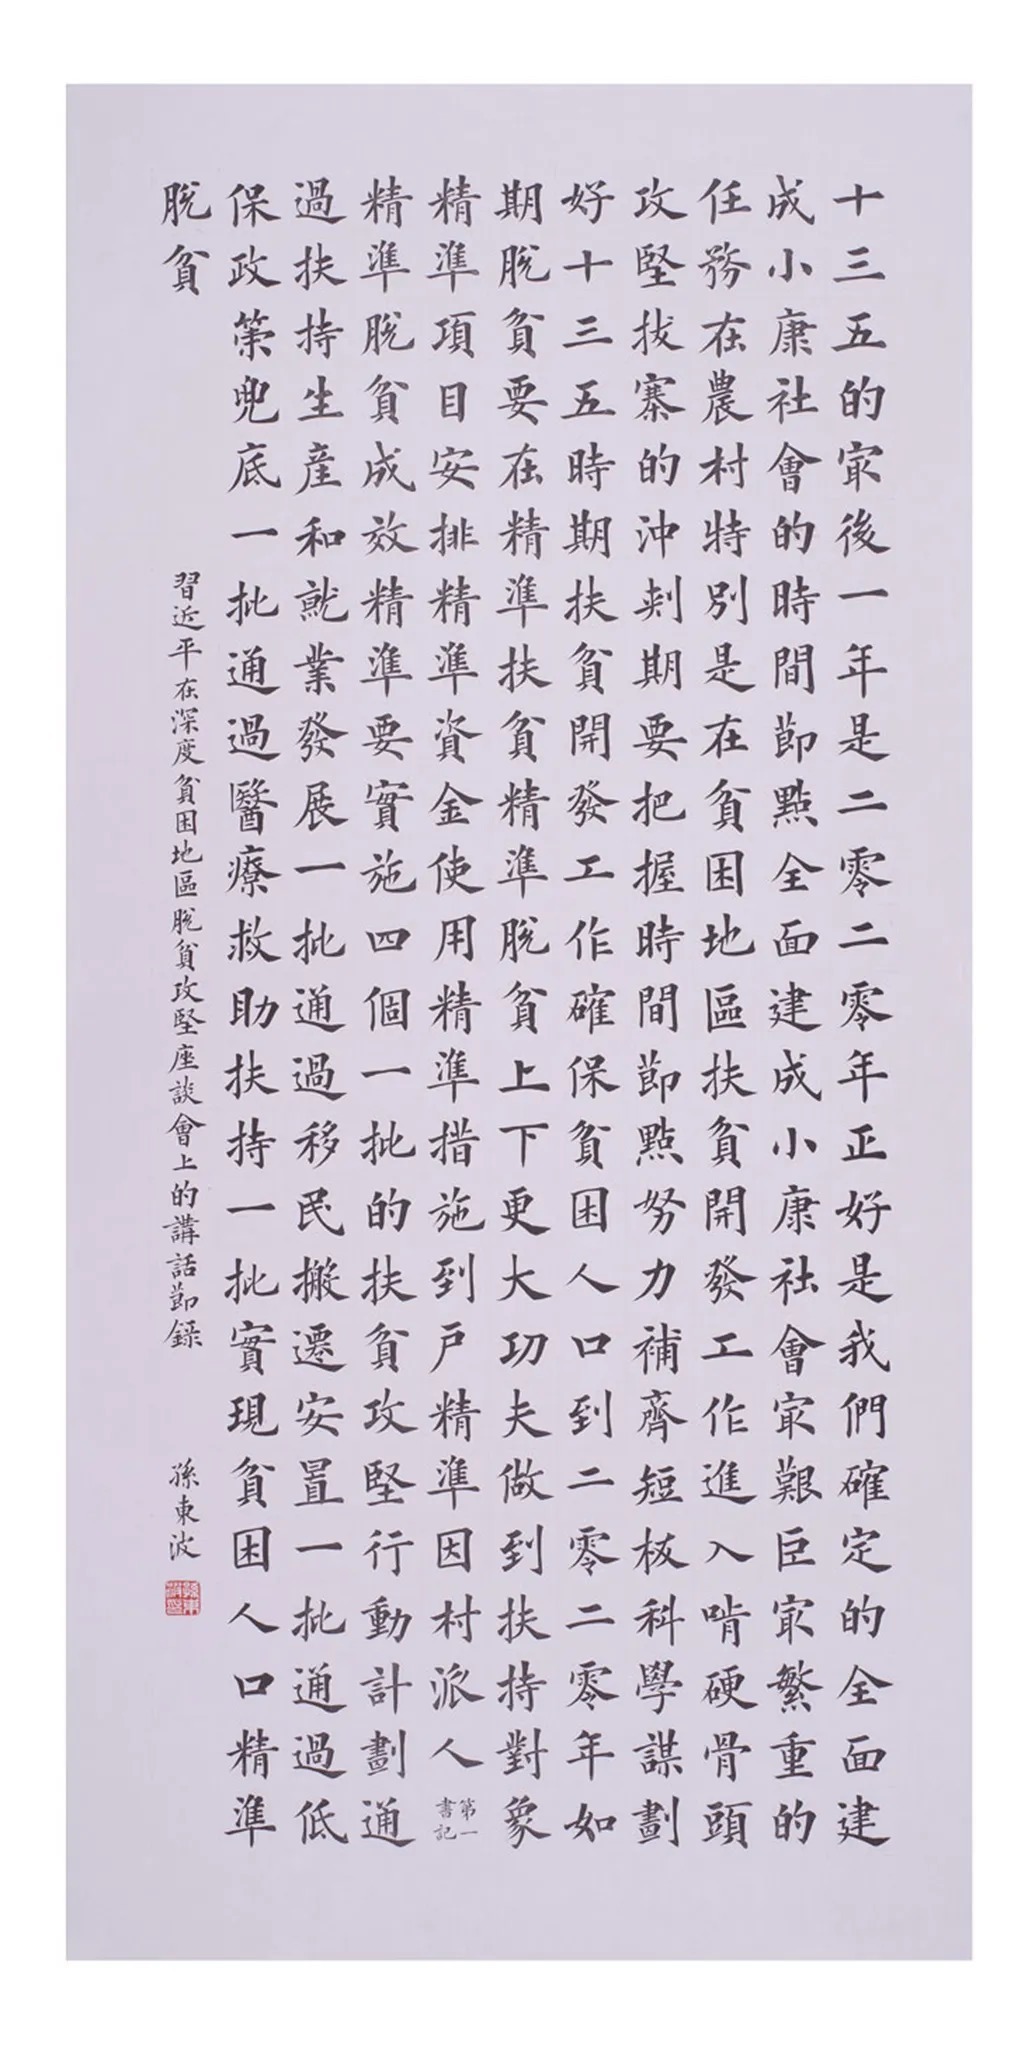 十三五的㝡後一年是二零二零年正好是我們確定的全面建
成小康社會的時間節點全面建成小康社會㝡艱巨㝡繁重的
任務在農村特別是在貧困地區扶貧開發工作進入啃硬骨頭
攻堅拔寨的沖刺期要把握時間節點努力補齊短板科學謀劃
好十三五時期扶貧開發工作確保貧困人口到二零二零年如
期脫貧要在精準扶貧精準脫貧上下更大功夫做到扶持對象
精準項目安排精準資金使用精準措施到戶精準因村派人第一書記
精準脫貧成效精準要實施四個一批的扶貧攻堅行動計劃通
過扶持生産和就業發展一批通過移民搬遷安置一批通過低
保政策兜底一批通過醫療救助扶持一批實現貧困人口精準
脫貧
習近平在深度貧困地區脫貧攻堅座談會上的講話節錄
孫東波